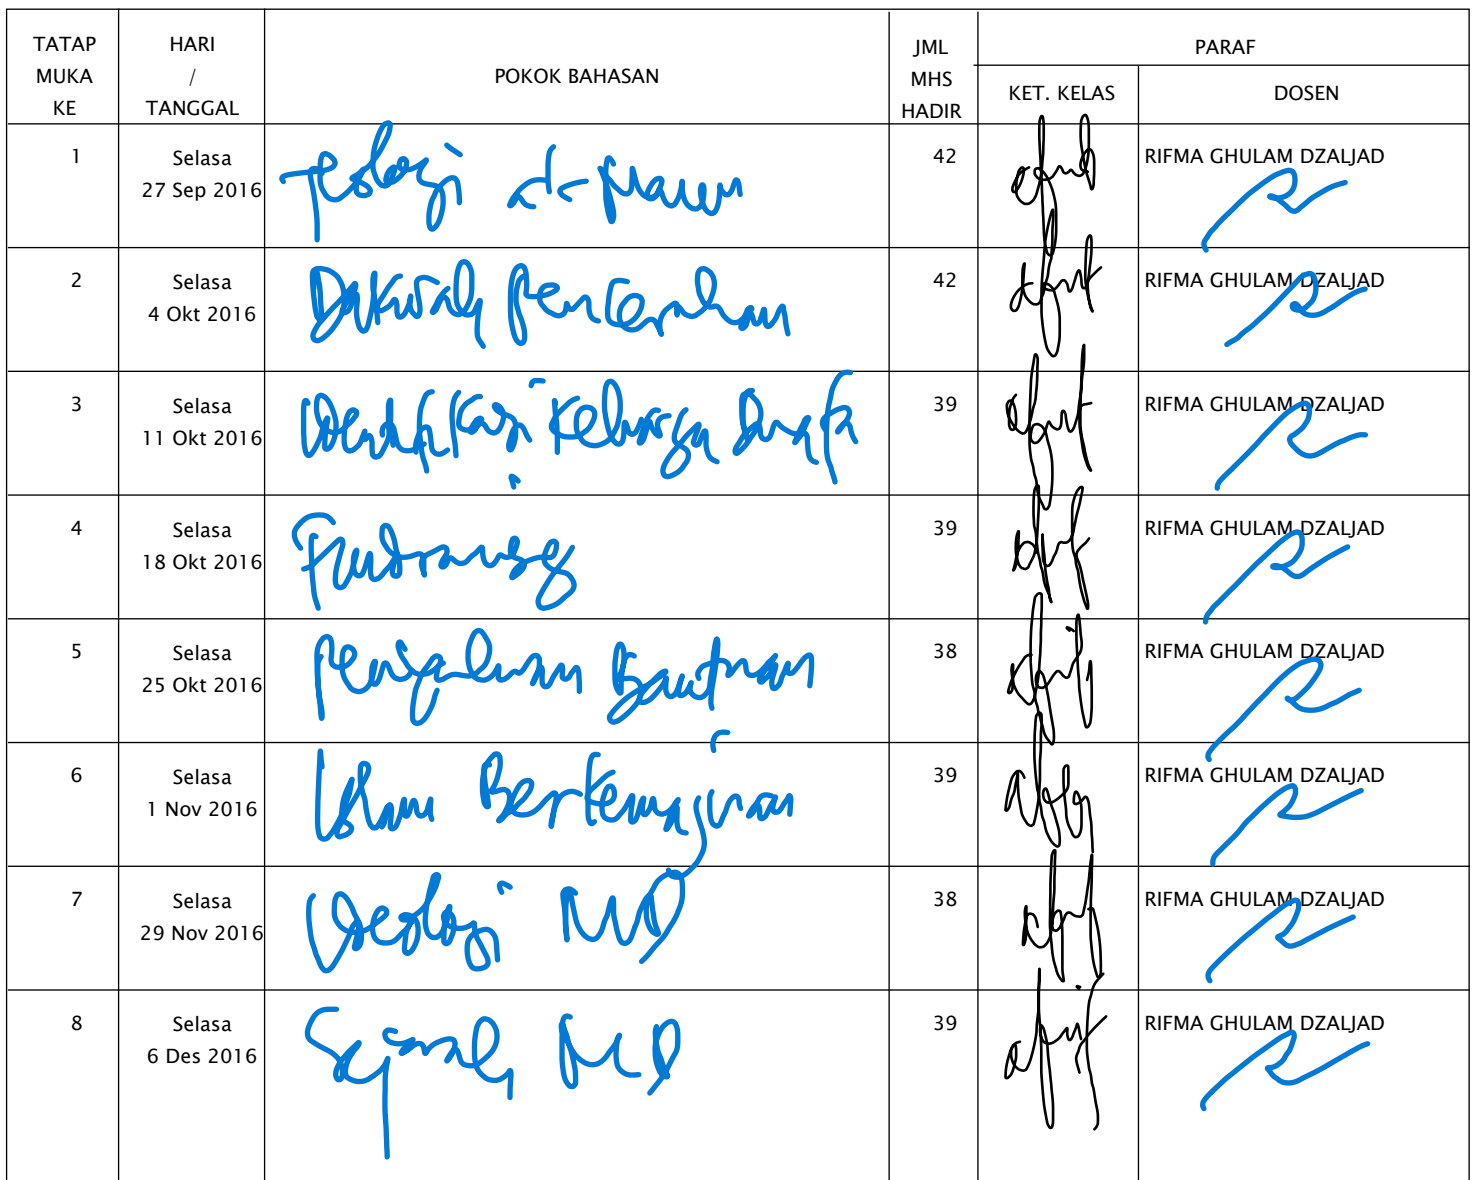 TATAP MUKA KE HARI / TANGGAL POKOK BAHASAN JML MHS HADIR PARAF
KET. KELAS DOSEN
1 Selasa 27 Sep 2016 Teologi al-Maun 42 RIFMA GHULAM DZALJAD
2 Selasa 4 Okt 2016 Dakwah Pencerahan 42 RIFMA GHULAM DZALJAD
3 Selasa 11 Okt 2016 Identifikasi Keluarga Duafa 39 RIFMA GHULAM DZALJAD
4 Selasa 18 Okt 2016 39 RIFMA GHULAM DZALJAD
5 Selasa 25 Okt 2016 Penyaluran Bantuan 38 RIFMA GHULAM DZALJAD
6 Selasa 1 Nov 2016 Islam Berkemajuan 39 RIFMA GHULAM DZALJAD
7 Selasa 29 Nov 2016 Ideologi MD 38 RIFMA GHULAM DZALJAD
8 Selasa 6 Des 2016 Sejarah MD 39 RIFMA GHULAM DZALJAD